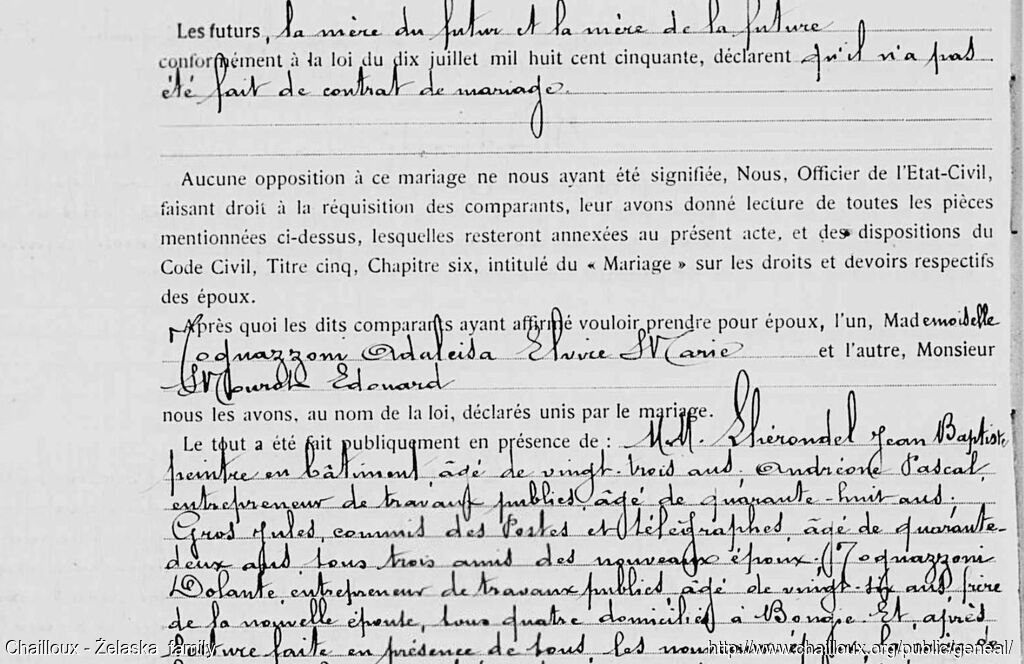 Les futurs, la mère du futur et la mère de la future
conformément à la loi du dix juillet mil huit cent cinquante, déclarent qu'il n'a pas
été fait de contrat de mariage.
Aucune opposition à ce mariage ne nous ayant été signifiée, Nous, Officier de l'Etat-Civil,
faisant droit à la réquisition des comparants, leur avons donné lecture de toutes les pièces
mentionnées ci-dessus, lesquelles resteront annexées au présent acte, et des dispositions du
Code Civil, Titre cinq, Chapitre six, intitulé du « Mariage » sur les droits et devoirs respectifs
des époux.
Après quoi les dits comparants ayant affirmé vouloir prendre pour époux, l'un, Mademoiselle
Tognazzoni Adaleisa Elvire Marie et l'autre, Monsieur
Edouard
nous les avons, au nom de la loi, déclarés unis par le mariage.
Le tout a été fait publiquement en présence de : M.M. Lhérondel Jean Baptiste
peintre en bâtiment, âgé de vingt-trois ans, Andréone Pascal,
entrepreneur de travaux publics, âgé de quarante-huit ans,
Gros Jules, commis des Postes et télégraphes, âgé de quarante-
deux ans, tous trois amis des nouveaux époux, Tognazzoni
Dolante, entrepreneur de travaux publics âgé de vingt-six ans, frère
de la nouvelle épouse, tous quatre domiciliés à Bougie. Et, après
lecture faite en présence de tous, les
Chailloux - Żelaska family http://www.chailloux.org/public/geneal/